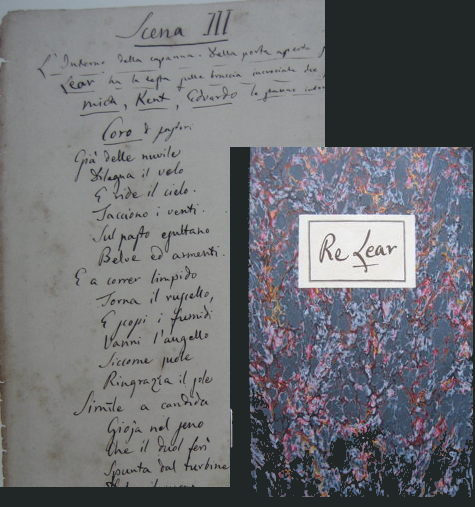 Scena III
L'Interno della capanna. Dalla porta aperta
Lear ha la testa sulle braccia incrociate
mica, Kent, Edvardo lo
Coro di pastori
Già delle nuvile
Dilegua il velo
E ride il cielo.
Tacciono i venti.
Sul pasto esultano
Belve ed armenti.
E a correr limpido
Torna il ruscello,
E scopi i fumidi
Vanni l'augello
Siccome suole
Ringrazia il sole
Simile a candida
Gioja nel seno
Che il duol ferì
Spunta dal turbine
Re Lear